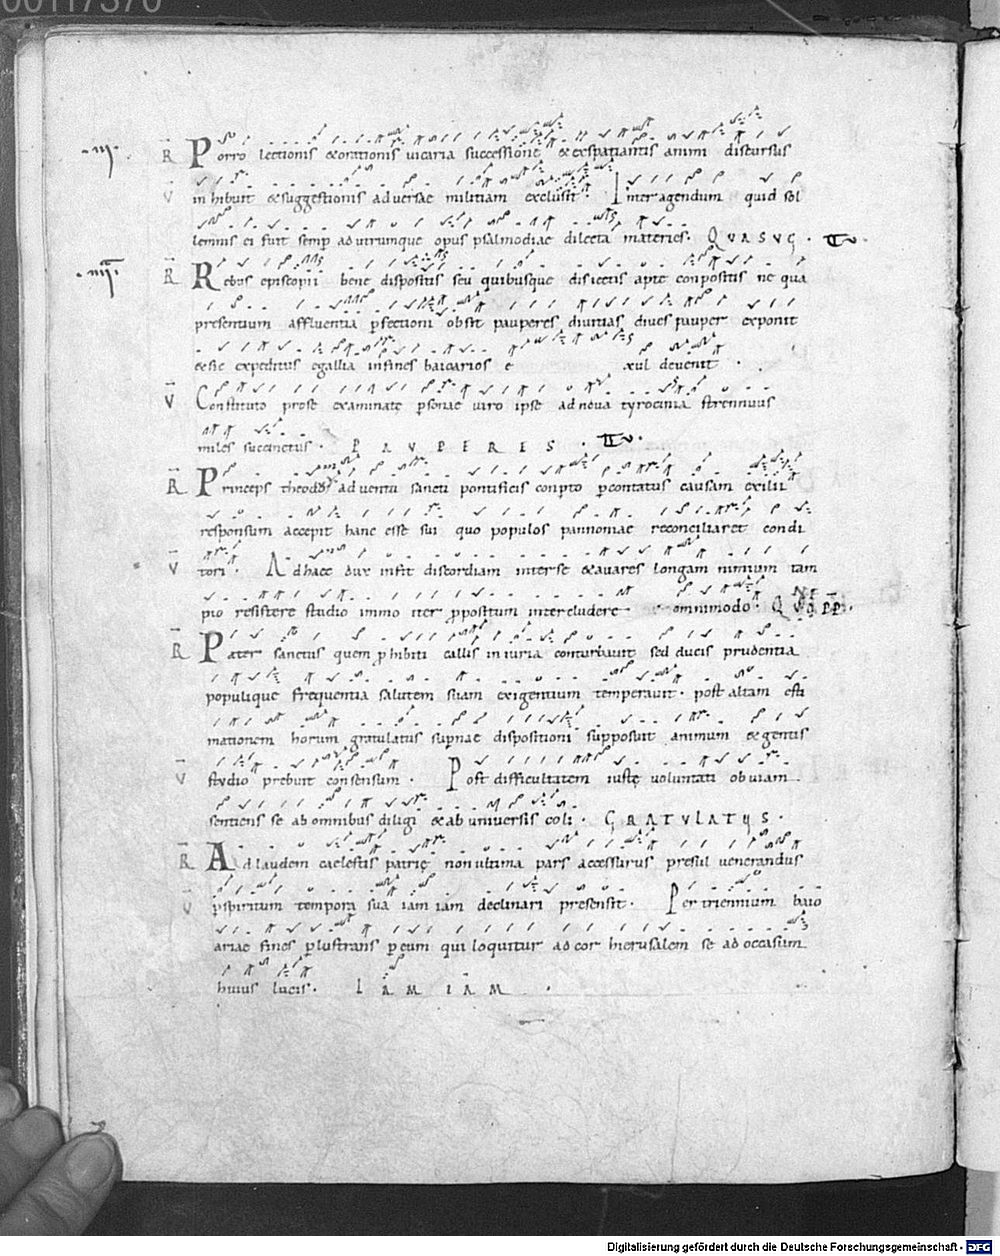 00117370
.III. R Porro lectionis & orationis uicaria successione & exspatiantis animi discursus
V inhibuit & suggestionis aduersae militiam exclusit. Inter agendum quid sol
lemnis ei fuit semp ad utrumque opus psalmodiae dilecta materies. QVA SVG.
.IIII. R Rebus episcopii bene dispositis seu quibusque disiectis apte conpositis ne qua
presentium affluentia psectioni obsit pauperes diuitias diues pauper exponit
& sic expeditus egallia infines baioarios e xul deuenit.
V Constituto prose examinatę psonae uiro ipse ad noua tyrocinia strennuus
miles succinctus. PAVPERES.
R Princeps theodo aduentu sancti pontificis conpto pcontatus causam exilii
responsum accepit hanc esse sui quo populos pannoniae reconciliaret condi
V tori. Adhaec dux infit discordiam inter se & auares longam nimium tam
pio resistere studio immo iter ppositum intercludere omnimodo.
R Pater sanctus quem phibiti callis iniuria conturbauit sed ducis prudentia
populique frequentia salutem suam exigentium temperauit. post altam esti
mationem horum gratulatus supnae dispositioni supposuit animum & gentis
V studio prebuit consensum. Post difficultatem iustę uoluntati obuiam
sentiens se ab omnibus diligi & ab uniuersis coli. GRATVLATVS.
R Ad laudem caelestis patrię non ultima pars accessurus presul uenerandus
V pspiritum tempora sua iam iam declinari presensit. Per triennium baio
ariae fines plustrans peum qui loquitur ad cor hierusalem se ad occasum
huius lucis. IAM IAM.
Digitalisierung gefördert durch die Deutsche Forschungsgemeinschaft - DFG